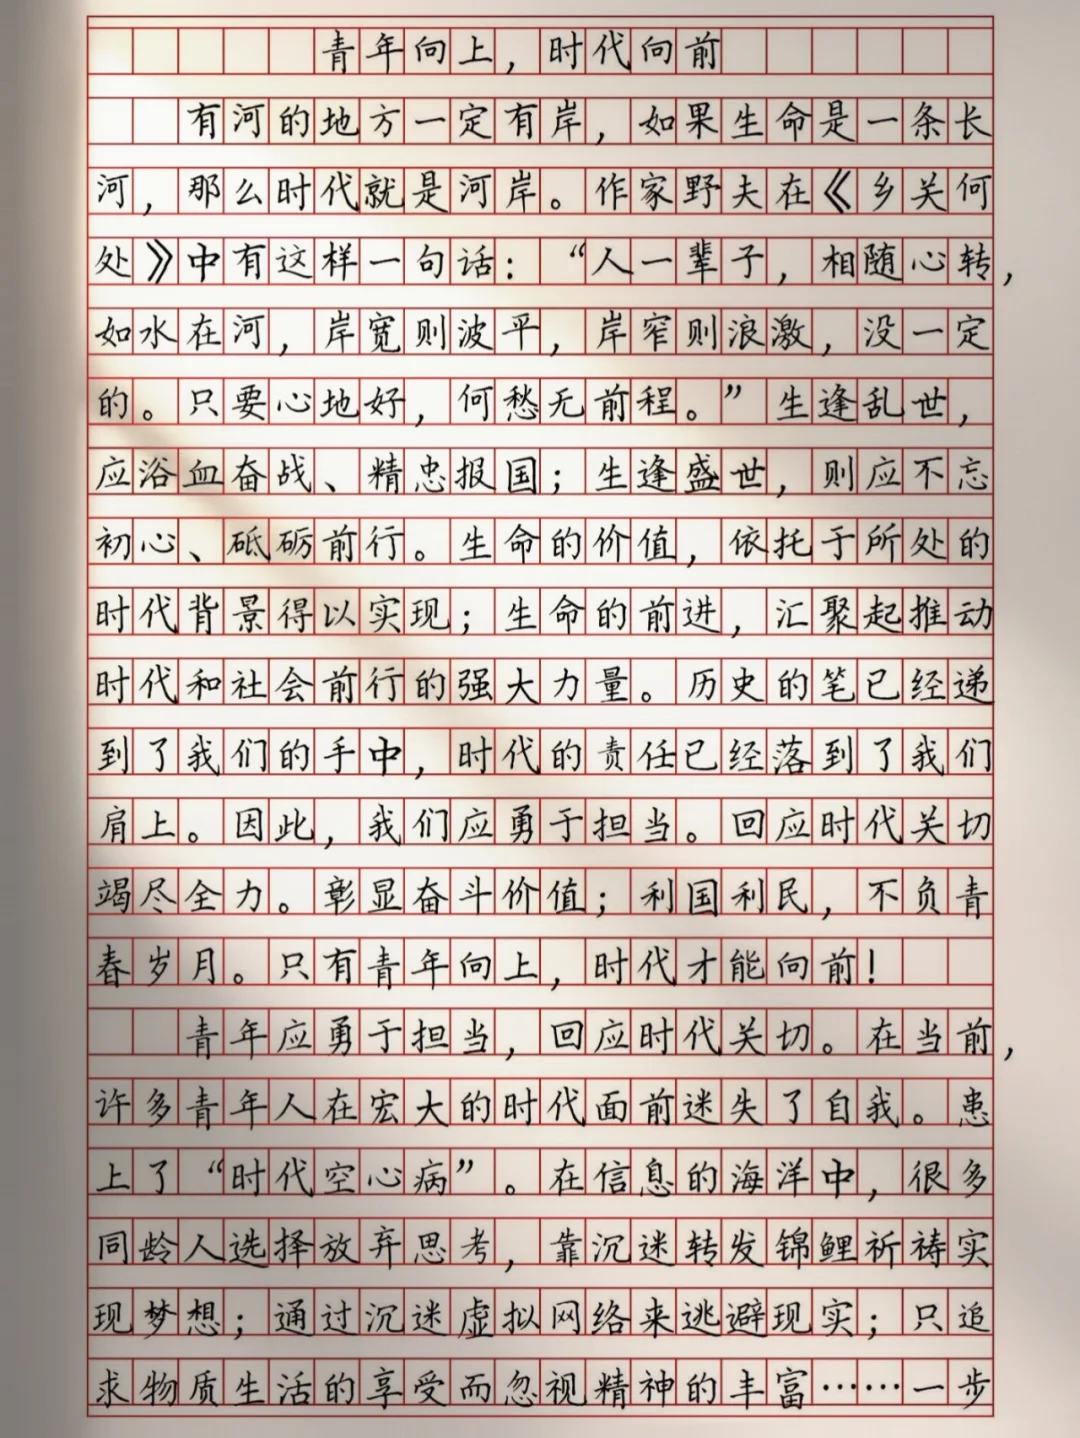 青年向上，时代向前
有河的地方一定有岸，如果生命是一条长
河，那么时代就是河岸。作家野夫在《乡关何
处》中有这样一句话：“人一辈子，相随心转，
如水在河，岸宽则波平，岸窄则浪激，没一定
的。只要心地好，何愁无前程。”生逢乱世，
应浴血奋战、精忠报国；生逢盛世，则应不忘
初心、砥砺前行。生命的价值，依托于所处的
时代背景得以实现；生命的前进，汇聚起推动
时代和社会前行的强大力量。历史的笔已经递
到了我们的手中，时代的责任已经落到了我们
肩上。因此，我们应勇于担当。回应时代关切
竭尽全力。彰显奋斗价值；利国利民，不负青
春岁月。只有青年向上，时代才能向前！
青年应勇于担当，回应时代关切。在当前，
许多青年人在宏大的时代面前迷失了自我。患
上了“时代空心病”。在信息的海洋中，很多
同龄人选择放弃思考，靠沉迷转发锦鲤祈祷实
现梦想；通过沉迷虚拟网络来逃避现实；只追
求物质生活的享受而忽视精神的丰富……一步